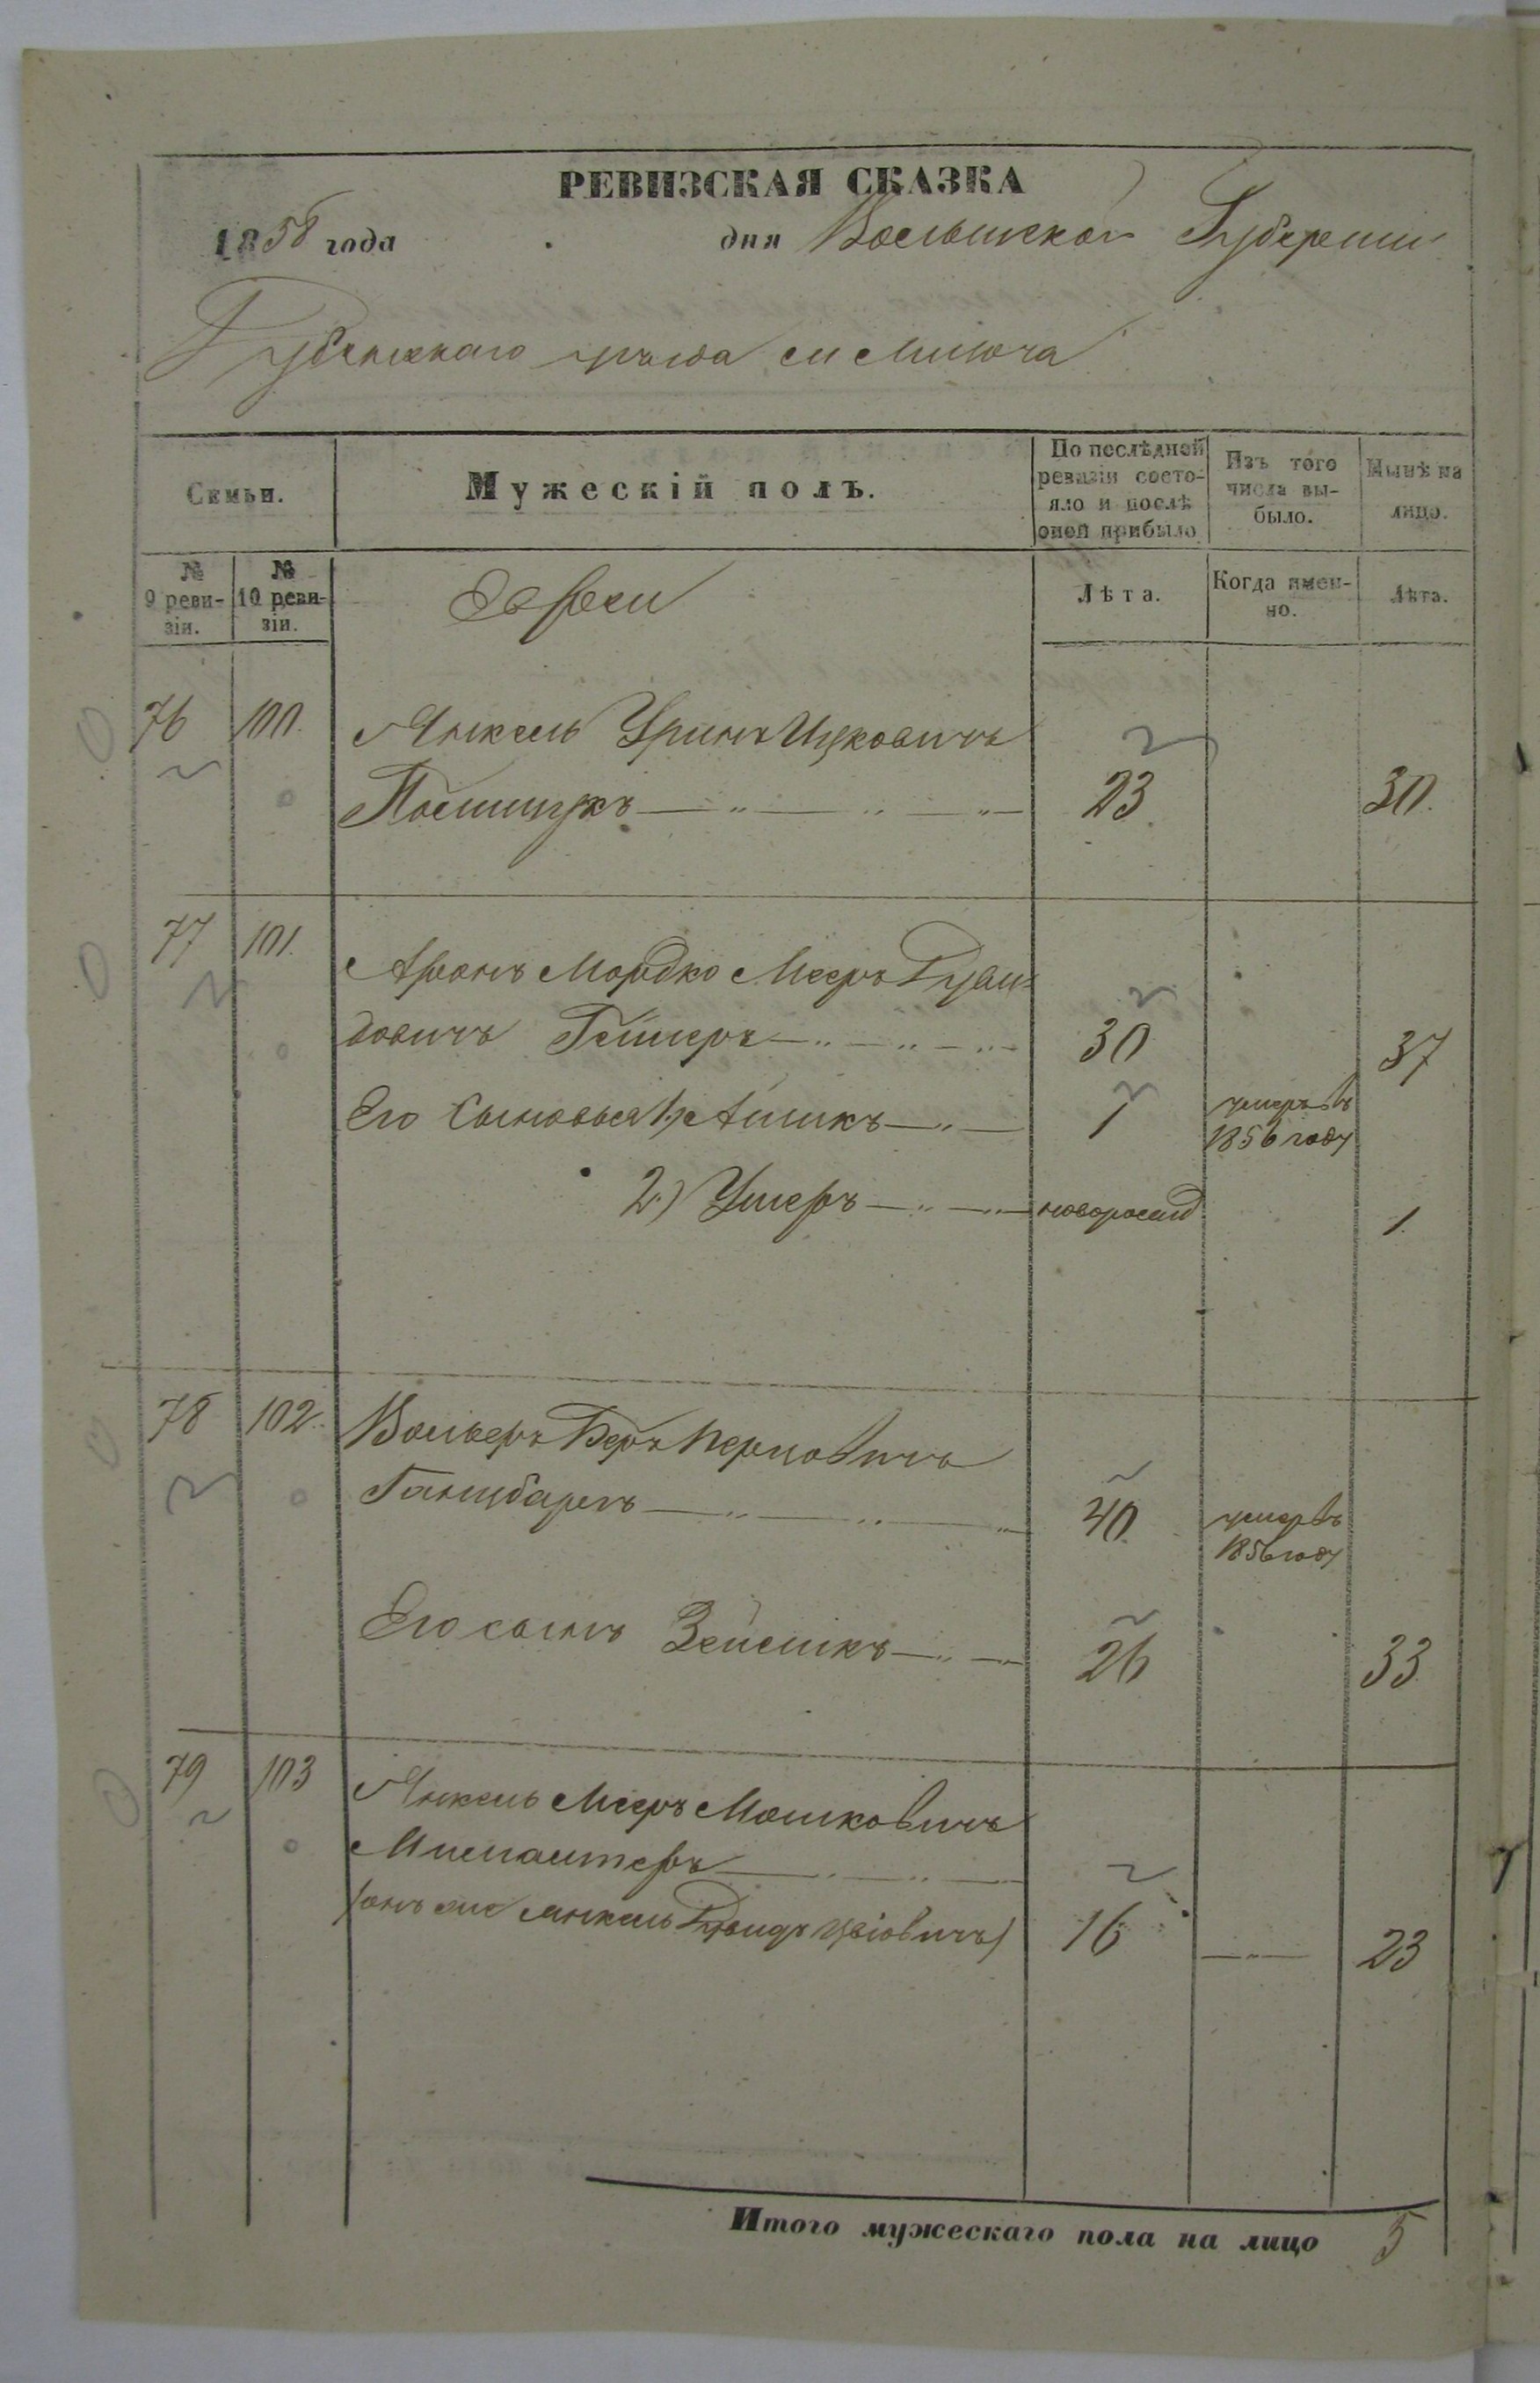 РЕВИЗСКАЯ СКАЗКА
1858 года дня Волынской Губернии
Дубенского уѣзда м Млинова
Семьи.
Мужескій полъ.
По послѣдней ревизіи состояло и послѣ оной прибыло
Изъ того числа выбыло.
Нынѣ на лицо.
№ 9 ревизіи.
№ 10 ревизіи.
Евреи
Лѣта.
Когда именно.
Лѣта.
76 100. Янкель Уринъ Ицковичъ
23 30.
77 101. Аронъ Мордко Мееръ Дуви=
довичъ 30 37
Его Сыновья 1, 1 умеръ въ
1856 году
2.) Умеръ новорожд 1.
78 102. Беръ
40 умеръ въ
1856 году
Его сынъ Зейликъ 26 33.
79 103 Янкель Мееръ Мошковичъ
(онъ же Янкель 16 23
Итого мужескаго пола на лицо 5